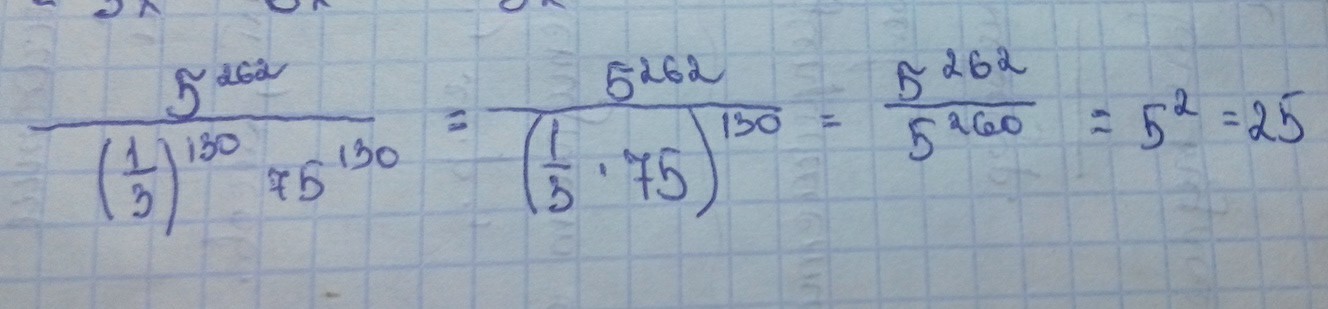 5^262 / ((1/3)^130 75^130) = 5^262 / (1/3 · 75)^130 = 5^262 / 5^260 = 5^2 = 25